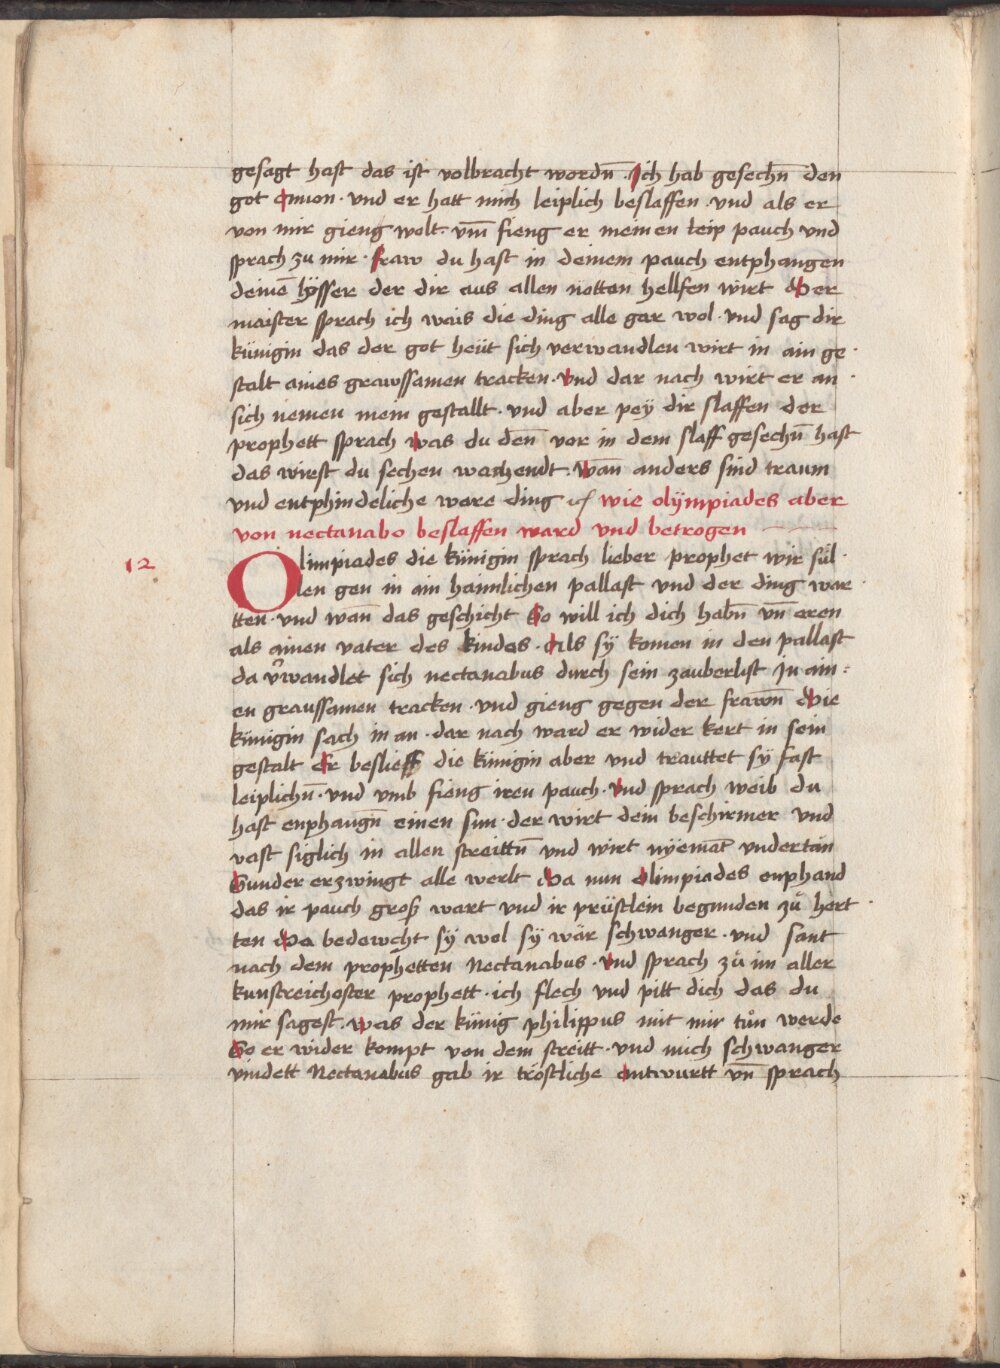 gesagt hast das ist volbracht wordn̄ · Ich hab gesechn̄ den
got Amon · vnd er hatt mich leiplich beslaffen · vnd als er
von mir gieng wolt · vm̄ fieng er meinen leip pauch vnd
sprach zu mir · fraw du hast in deinem pauch entphangen
deinē hÿffer der dir aus allen notten hellfen wirt Der
maister sprach ich wais die ding alle gar wol · vnd sag dir
künigin das der got heüt sich verwandlen wirt in ain ge ·
stalt aines grawssamen tracken · vnd dar nach wirt er an ·
sich nemen mein gestallt · vnd aber peÿ dir slaffen der
prophett sprach was du den̄ vor in dem slaff gesechn̄ hast
das wirst du sechen wachendt · wan̄ anders sind traum
vnd entphindeliche ware ding wie olÿmpiades aber
von nectanabo beslaffen ward vnd betrogen
12
Olimpiades die künigin sprach lieber prophet wir sül ·
len gen in ain haimlichen pallast vnd der ding war ·
tten · vnd wan̄ das geschicht So will ich dich habn̄ vn̄ eren
als ainen vater des kindes · Als sÿ komen in den pallast
da v̾wandlet sich nectanabus durch sein zauberlist In ain :
en graussamen tracken · vnd gieng gegen der frawn̄ Die
künigin sach in an · dar nach ward er wider kert in sein
gestalt Er beslieff die künigin aber vnd trauttet sÿ fast
leiplichn̄ · vnd vmb fieng iren pauch · vnd sprach weib du
hast enphangn̄ einen sun · der wirt dein beschirmer vnd
vast siglich in allen streittn̄ vnd wirt nÿemāt vndertän
Sunder erzwingt alle werlt Da nun olimpiades enphand
das ir pauch groß wart vnd ir prüstlein begunden zů hert ·
ten Da bedewcht sÿ wol sÿ wär schwanger · vnd sant
nach dem prophetten Nectanabus · vnd sprach zů im aller
kunstreichoster prophett · ich flech vnd pitt dich das du
mir sagest · was der künig philippus mit mir tůn werde
So er wider kompt von dem streitt · vnd mich schwanger
vindett Nectanabus gab ir tröstliche antwurtt vn̄ sprach